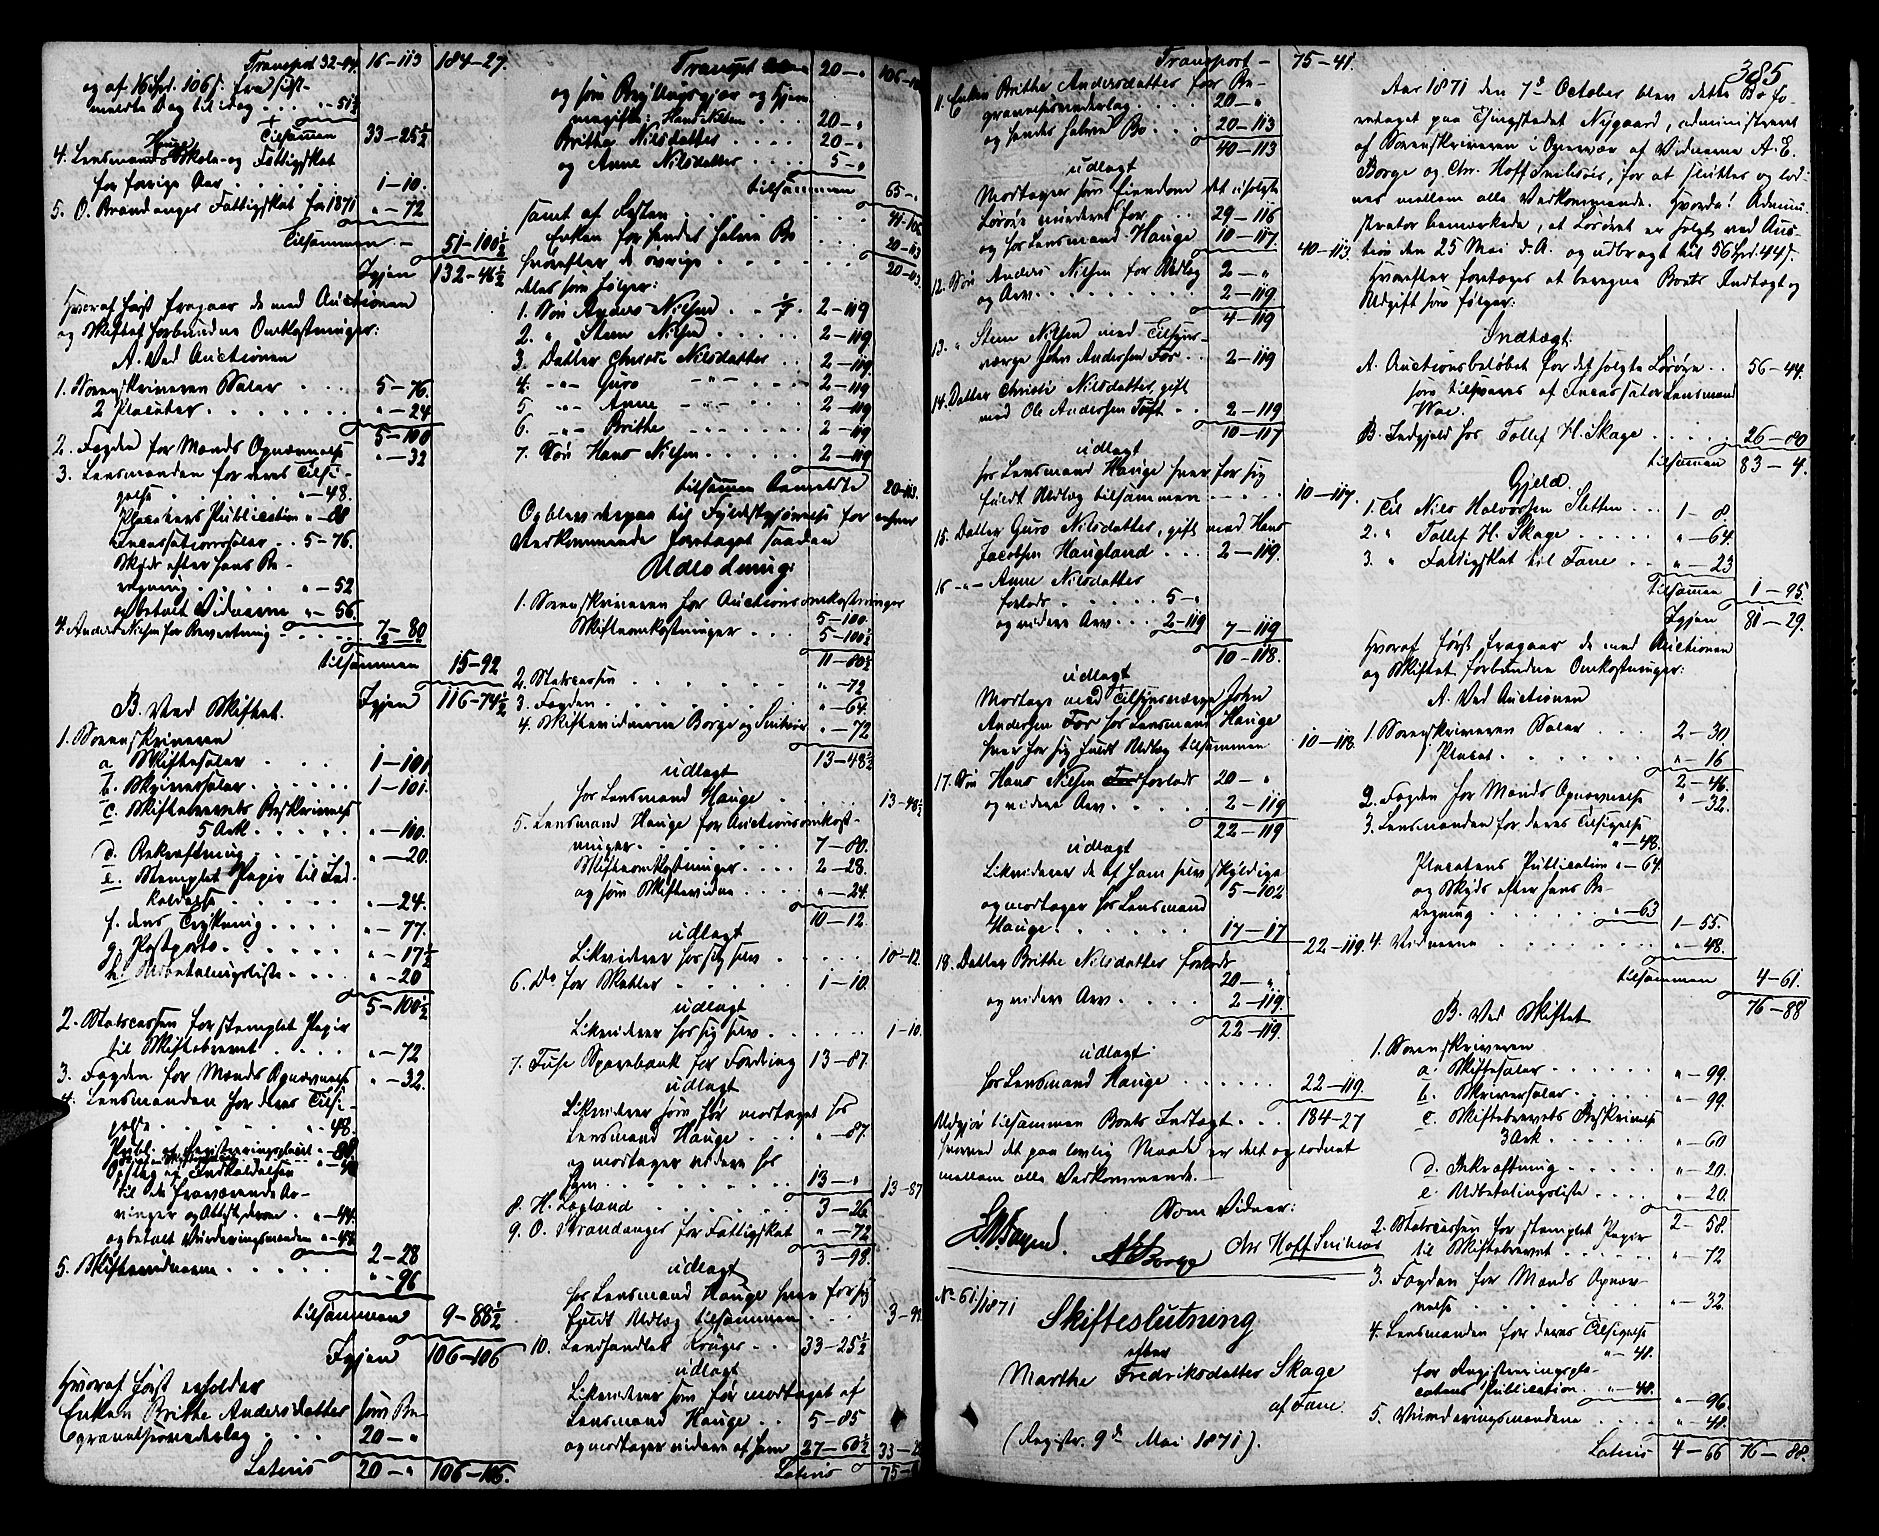 Transport 32-94. 16-113 184-27.
og af 16 Spd. 106 s. fra sist-
meldte Dag til idag . . "-51½
Tilsammen 33-25½
4. Lensmand Hauge Skole- og Fattigskat
for forrige Aar . . . 1-10.
5. O. Brandanger Fattigskat for 1871 "-72
Tilsammen - 51-100½
Igjen 132-46½
Hvoraf først fragaar de med Auctionen
og Skiftet forbundne Omkostninger:
A. Ved Auctionen
1. Sorenskriveren Salar . . . 5-76.
2 Placater . . . "-24
5-100
2. Fogden for Mænds Opnævnelse "-32
3. Lensmanden for deres Tilsi-
gelse . . . "-48.
Placaters Publication "-88
Incassationssalar . . 5-76.
Skyds efter hans Be-
regning . . . "-52
og betalt Vidnerne "-56.
7-80
4. Anders Nilsen for Bevertning . . 2-
tilsammen 15-92
Igjen 116-74½
B. Ved Skiftet.
1. Sorenskriveren
a Skiftesalar . . . 1-101
b. Skriversalar . . . 1-101.
c. Skiftebrevets Beskrivelse
5 Ark . . . "-100.
d. Bekræftning . . . "-20.
e. Stemplet Papir til Ind-
kaldelse . . . "-24.
f. dens Trykning . . . "-77.
g. Postporto . . . "-17½
h. Udbetalingsliste . . . "-20
5-100½
2. Statscassen for stemplet Papir
til Skiftebrevet . . . "-72
3. Fogden for Mænds Opnævnelse "-32.
4. Lensmanden for deres Tilsi-
gelse . . . "-48.
Publ. af Registreringsplacat "-88
Opslag af Indkaldelsen "-48
til de fraværende Ar-
vinger og Attest derom . "-44.
og betalt Vurderingsmænden "-48
2-28
5. Skiftevidnerne . . . "-96
tilsammen 9-88½
Igjen 106-106
Hvoraf først erholder
Enken Brithe Andersdatter som Be-
gravelsesvederlag . . . 20-"
Lateris 20-" 106-106.
Transport 20-" 106-106
og som Bryllupsgjær og Hjem-
megifte: Hans Nilsen . . . 20-"
Brithe Nilsdatter . . . 20-"
og Anne Nilsdatter . . . 5-"
tilsammen 65-"
samt af Resten . . . 41-106
Enken for hendes halve Bo . . . 20-113
hvorefter de øvrige . . . 20-113.
deles som følger:
1. Søn Anders Nilsen . . 2-119
2. " Steen Nilsen . . . 2-119
3. Datter Christi Nilsdatter . . . 2-119.
4. -"- Guro -"- . . 2-119
5 -"- Anne -"- . . 2-119
6. -"- Brithe . . . 2-119
7. Søn Hans Nilsen . . . 2-119
tilsammen Anmeldte 20-113.
Og blev derpaa til Fyldestgjørelse for enhver
Vedkommende foretaget saadan
Udlodning:
1. Sorenskriveren for Auctionsomkostninger 5-100.
Skifteomkostninger . . . 5-100½
11-80½
2. Statscassen . . . "-72
3. Fogden . . . "-64.
4. Skiftevidnerne Borge og Smitsøe "-72
13-48½
udlagt
hos Lensmand Hauge . . . 13-48½
5. Lensmand Hauge for Auctionsomkost-
ninger . . . 7-80.
Skifteomkostninger . . . 2-28.
og som Skiftevidne . . . "-24.
10-12.
udlagt
Likviderer hos sig selv . . . 10-12.
6. Do for Skatter . . . 1-10.
udlagt
Likviderer hos sig selv . . . 1-10.
7. Fuse Sparebank for Fordring 13-87.
udlagt
Likviderer som før modtaget hos
Lensmand Hauge . . . "-87.
og modtager videre hos
ham . . . 13-" 13-87
8. H.Løgland . . . 3-26.
9. O. Strandanger for Fattigskat "-72
3-98.
udlagt
hos Lensmand Hauge hver for sig
fuldt Udlæg tilsammen . . . 3-98
10. Landhandler Krüger . . . 33-25½
udlagt
Likviderer som før modtaget af
Lensmand Hauge . . 5-85
og modtager videre af ham 27-60½ 33-25
Lateris 75-
Transport - 75-41.
11. Enken Brithe Andersdatter for Be-
gravelsesvederlag . . . 20-"
og hendes halve Bo . . . 20-113
40-113
udlagt
Modtager som Eiendom det usolgte
Løsøre vurderet for . . 29-116
og hos Lensmand Hauge 10-117. 40-113.
12. Søn Anders Nilsen for Udlæg 2-"
og Arv . . . 2-119
4-119
13. " Steen Nilsen med Tilsyns-
værge John Andersen Før . . 2-119
14. Datter Christi Nilsdatter, gift
med Ole Andersen Tuft . . 2-119
10-117
udlagt
hos Lensmand Hauge hver for sig
fuldt Udlæg tilsammen . . . 10-117.
15. Datter Guro Nilsdatter, gift med Hans
Jacobsen Haugland . . . 2-119.
16 -"- Anne Nilsdatter
forlods . . . 5-"
og videre Arv . . . 2-119 7-119
10-118.
udlagt
Modtages med Tilsynsværge John
Andersen Før hos Lensmand Hauge
hver for sig fuldt Udlæg tilsammen 10-118.
17. Søn Hans Nilsen forlods 20-"
og videre Arv . . . 2-119
22-119
udlagt
Likviderer de af ham selv skyldige
5-102
og modtager hos Lensmand
Hauge . . . 17-17 22-119.
18. Datter Brithe Nilsdatter forlods
20-"
og videre Arv . . . 2-119.
22-119.
udlagt
hos Lensmand Hauge . . . 22-119.
Udgjør tilsammen Boets Indtægt . . . 184-27
hvorved det paa lovlig Maade er delt og loddet
mellem alle Vedkommende.
Som Vidner:
A E Borge Chr Hoff Smitsøe
No 61/1871
Skifteslutning
efter
Marthe Fredriksdatter Skage
af Fane.
(Registr. 9de Mai 1871).
385
Aar 1871 den 7de October blev dette Bo fo-
retaget paa Thingstedet Nygaard, administreret
af Sorenskriveren i Overvær af Vidnerne A. E.
Borge og Chr. Hoff Smitsøe, for at sluttes og lod-
nes mellem alle Vedkommende. Hvorda! Admini-
strator bemerkede, at Løsøret er solgt ved Auc-
tion den 25 Mai d. A. og udbragt til 56 Spd. 44 s.
Hvorefter foretoges at beregne Boets Indtægt og
Udgift som følger:
Indtægt.
A. Auctionsbeløbet for det solgte Løsøre . . 56-44.
som tilsvares af Incassator Lensmand
Woe.
B. Indgjeld hos Tollef H. Skage . . . 26-80
tilsammen 83-4.
Gjeld.
1. Til Nils Halvorsen Sletten . . . 1-8
2. " Tollef H. Skage . . . "-64.
3. " Fattigskat til Fane . . "-23
Tilsammen 1-95.
Igjen 81-29.
Hvoraf først fragaar de med Auctionen
og Skiftet forbundne Omkostninger:
A. Ved Auctionen
1. Sorenskriveren Salar . . . 2-30
1 Placat . . . "-16
2-46.
2. Fogden for Mænds Opnævnelse "-32.
3. Lensmanden for deres Tilsigelse
"-48.
Placatens Publication "-64.
og Skyds efter hans Be-
regning . . . "-63 1-55.
4. Vidnerne . . . "-48.
tilsammen 4-61.
76-88
B. Ved Skiftet
1. Sorenskriveren
a. Skiftesalar . . . "-99.
b. Skriversalar . . . "-99.
c. Skiftebrevets Beskrivelse
3 Ark . . . "-60
d. Bekræftning . . . "-20.
e. Udbetalingsliste . . . "-20.
2-58.
2. Statscassen for stemplet Papir
til Skiftebrevet . . . "-72
3. Fogden for Mænds Opnæv-
nelse . . . "-32.
4. Lensmanden for deres Tilsigelse
"-48.
for Registreringspla-
catens Publication . . "-48. "-96
5. Vurderingsmændene . . . "-48.
Lateris 4-66 76-88.